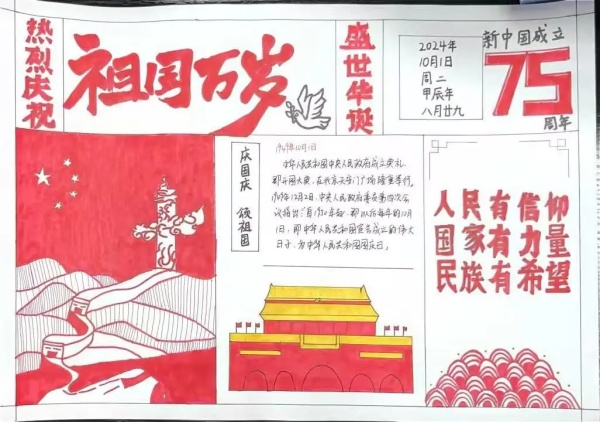 热烈庆祝
祖国万岁
盛世华诞
2024年
10月1日
周二
甲辰年
八月廿九
新中国成立
75
周年
庆国庆 颂祖国
1949年10月1日
中华人民共和国中央人民政府成立典礼
即开国大典，在北京天安门广场隆重举行。
1949年12月2日，中央人民政府委员会第四次会
议指出：自1950年起，即以每年的10月
1日，即中华人民共和国宣告成立的伟大
日子，为中华人民共和国国庆日。
人民有信仰
国家有力量
民族有希望